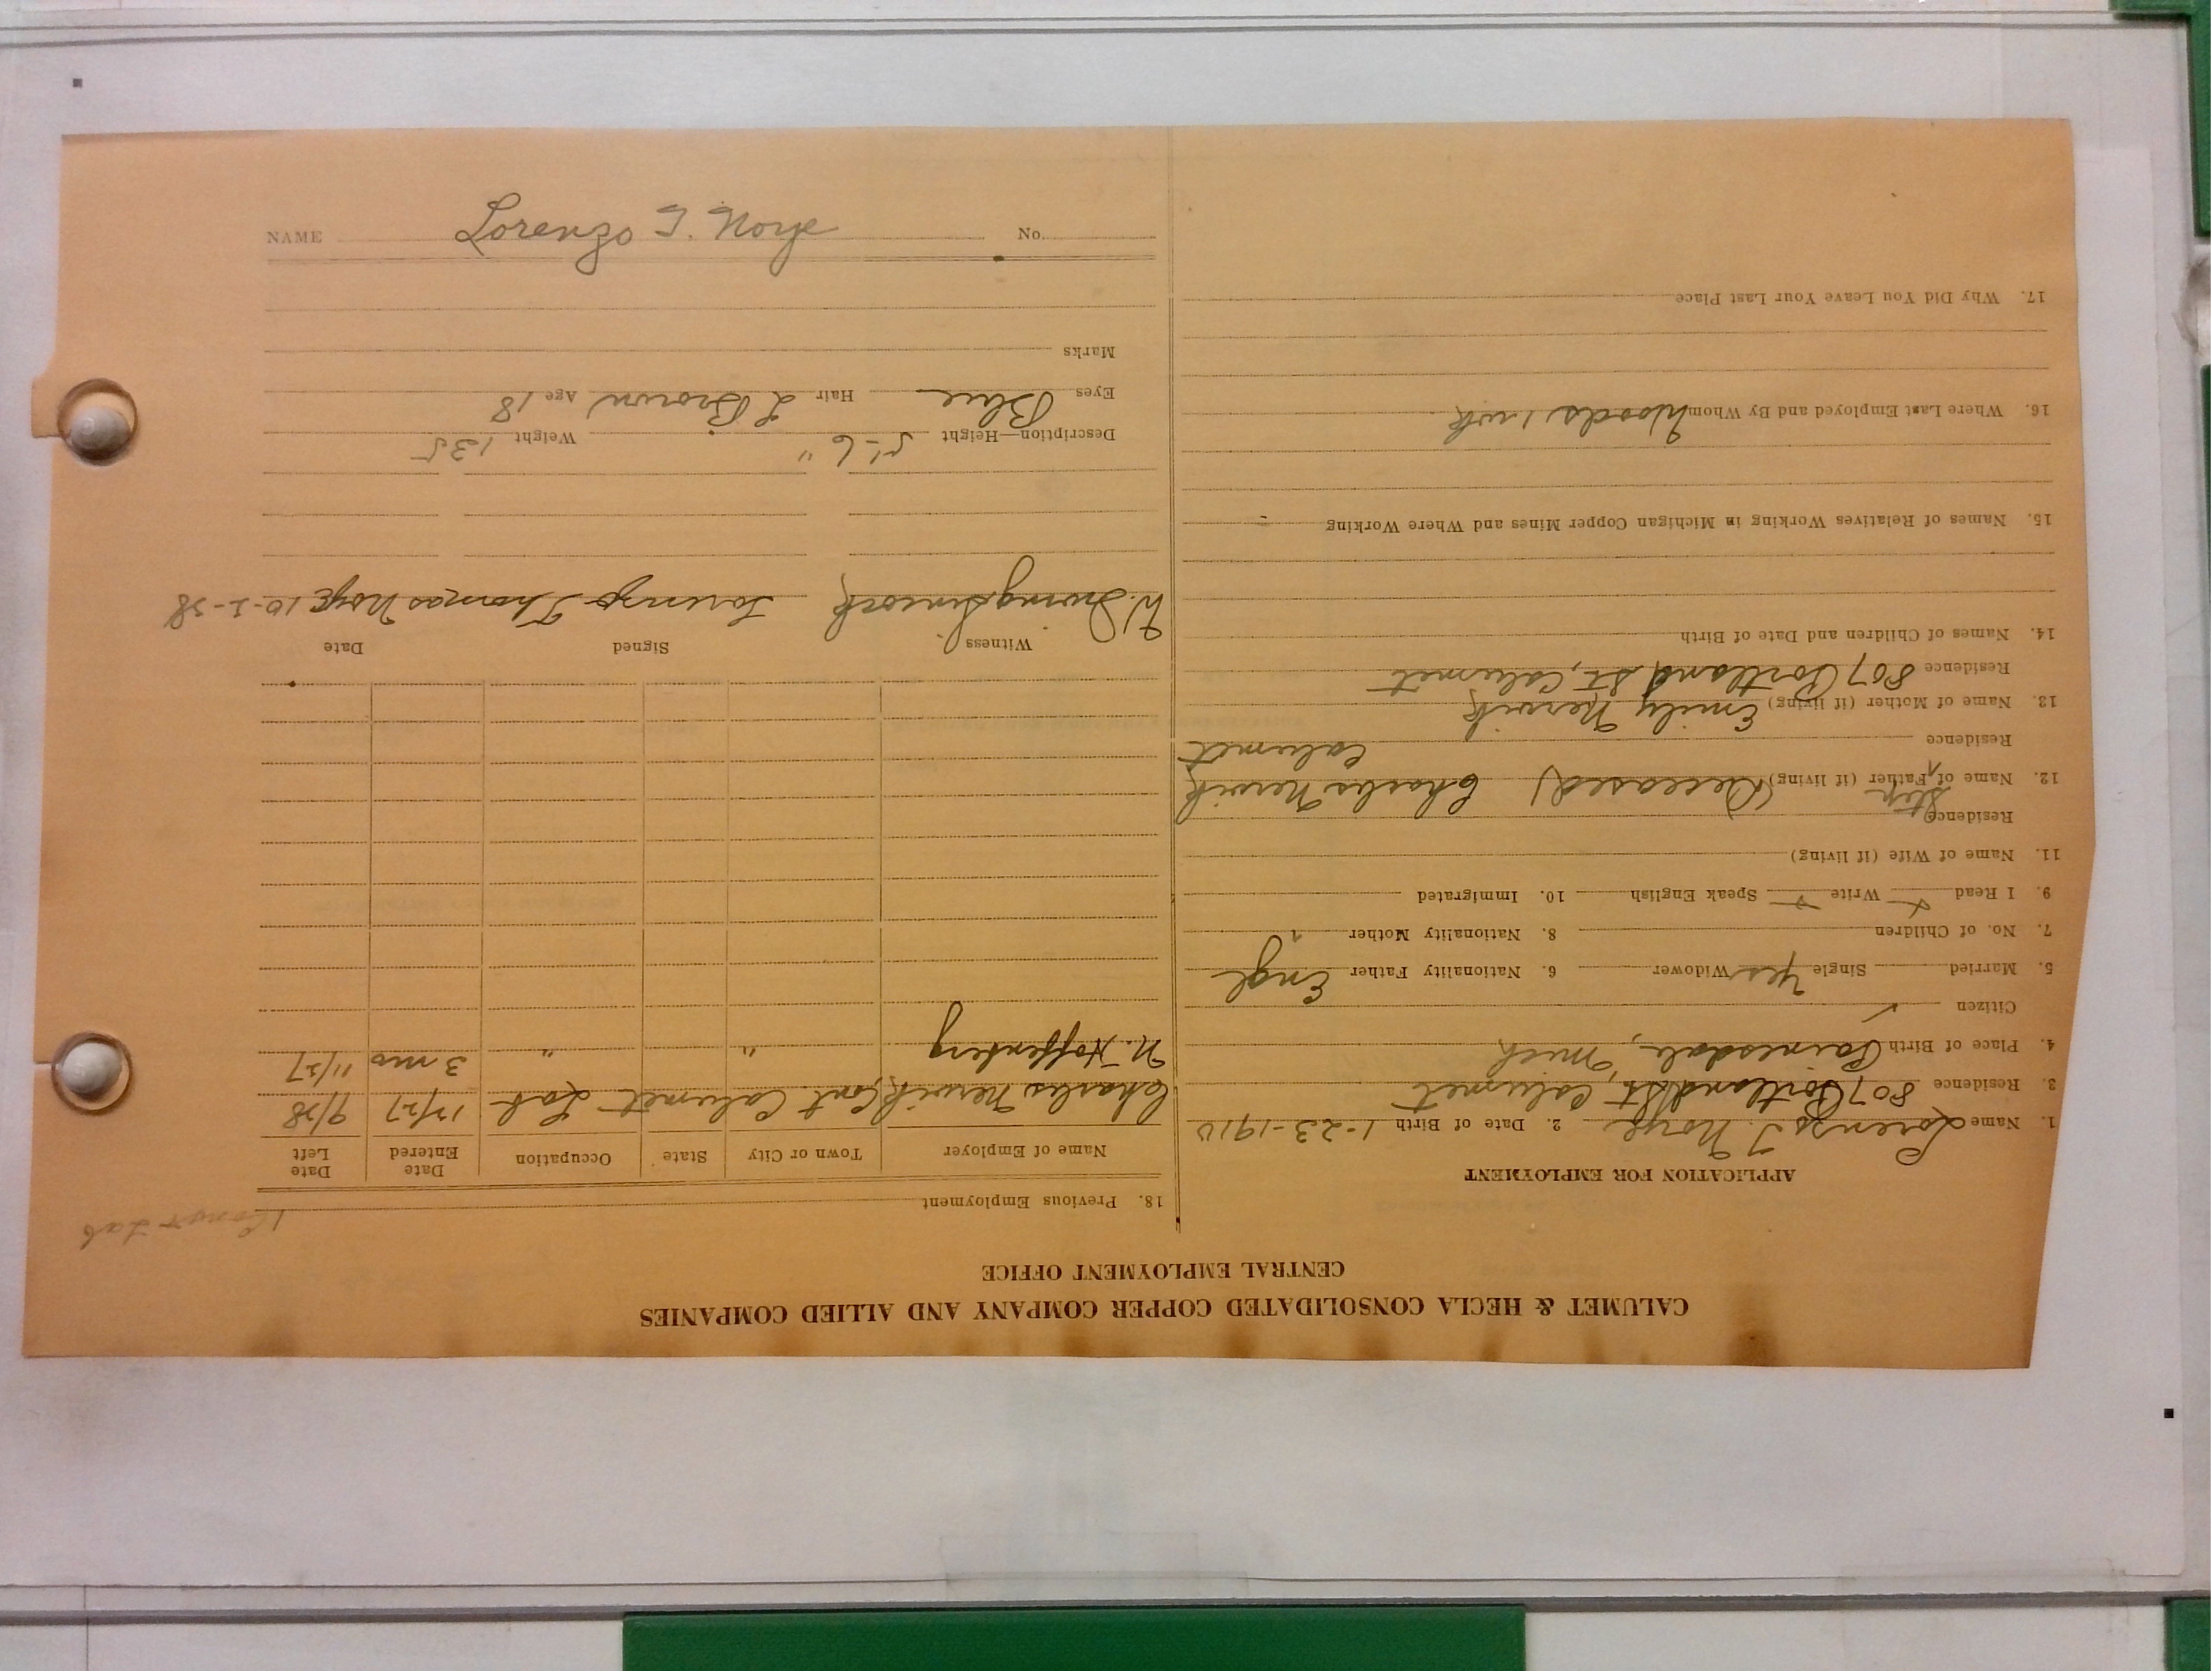 CALUMET & HECLA CONSOLIDATED COPPER COMPANY AND ALLIED COMPANIES
CENTRAL EMPLOYMENT OFFICE
APPLICATION FOR EMPLOYMENT
1. Name Lorenzo T. Noye 2. Date of Birth 1-23-1910
3. Residence 807 Portland St, Calumet
4. Place of Birth Painesdale, Mich
Citizen ✓
5. Married Single Yes Widower 6. Nationality Father Engl
7. No. of Children 8. Nationality Mother "
9. I Read Write Speak English 10. Immigrated
11. Name of Wife (if living)
Residence
12. Name of Step Father (if living) (Deceased) Charles Nerwik
Residence Calumet
13. Name of Mother (if living) Emily Nerwik
Residence 807 Portland St, Calumet
14. Names of Children and Date of Birth
15. Names of Relatives Working in Michigan Copper Mines and Where Working -
16. Where Last Employed and By Whom Woods, 1 wk
17. Why Did You Leave Your Last Place
1 Const Lab
18. Previous Employment
Name of Employer Town or City State Occupation Date Entered Date Left
Charles Nerwik, Cont. Calumet Lab 12/27 9/28
N. Hoffenberg " " 3 mo 11/27
Witness Signed Date
W. Irving Simcock Lorenzo Thomas Noye 10-2-28
Description—Height 5'-6" Weight 135
Eyes Blue Hair L Brown Age 18
Marks
NAME Lorenzo T. Noye No.